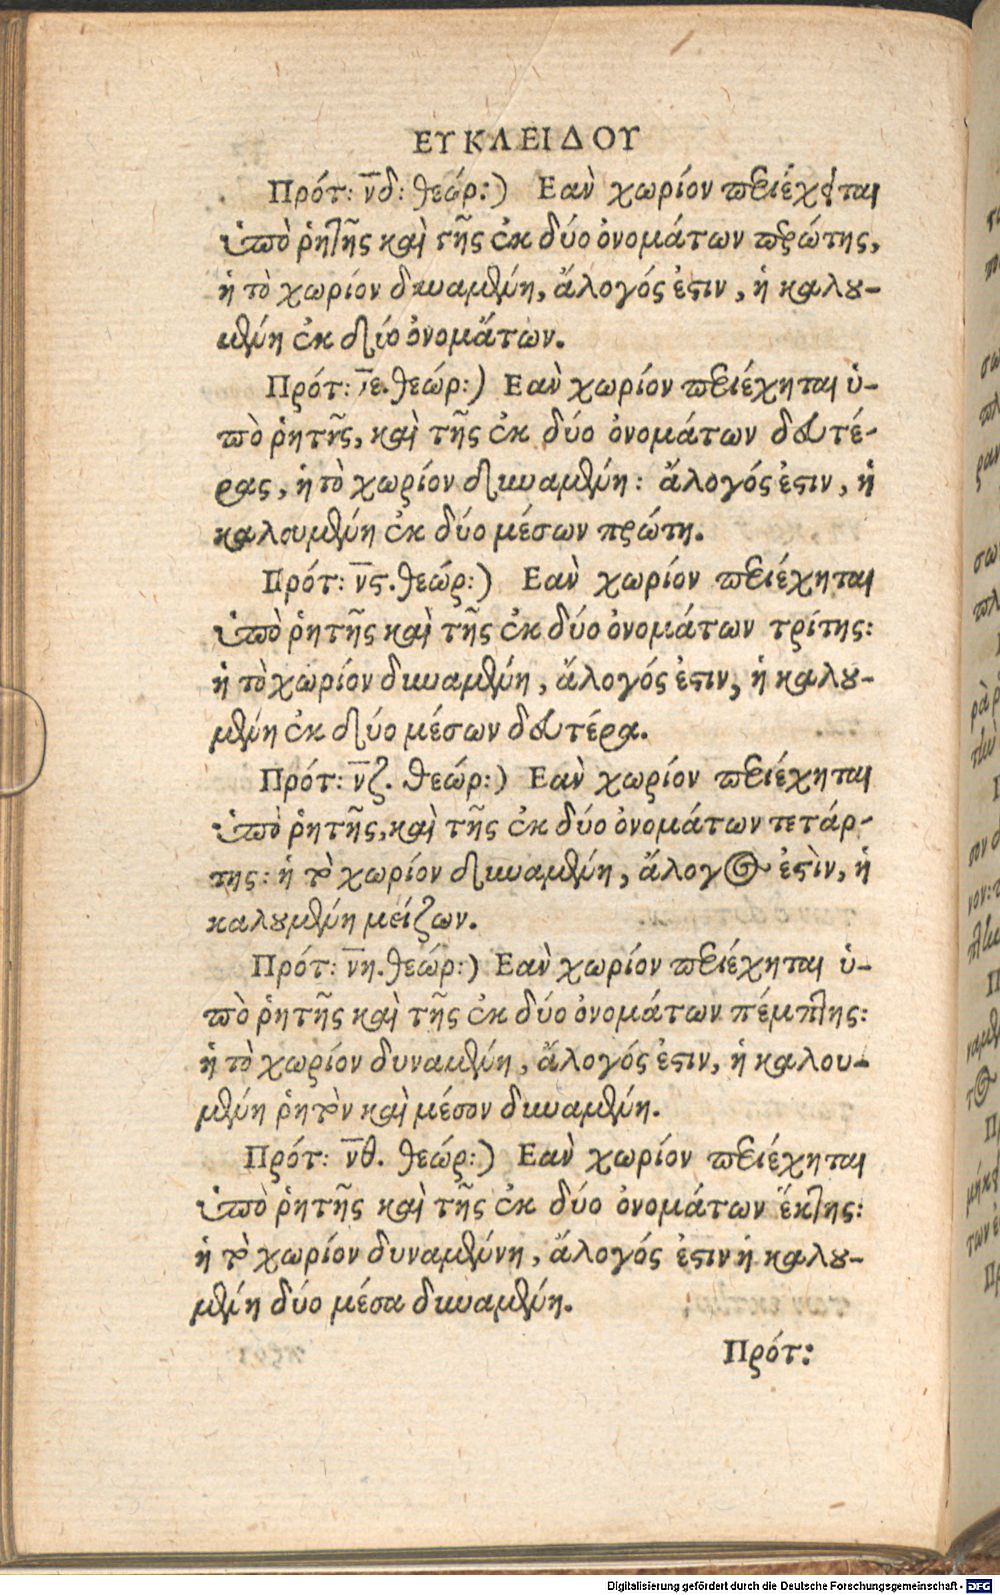 ΕΥΚΛΕΙΔΟΥ
Πρότ: ν̅δ: θεώρ:) Εαν χωρίον περιέχηται
ὑπὸ ῥητῆς καὶ τῆς ἐκ δύο ὀνομάτων πρώτης,
ἡ τὸ χωρίον δυναμένη, ἄλογός ἐστιν, ἡ καλου-
μένη ἐκ δύο ὀνομάτων.
Πρότ: ν̅ε. θεώρ:) Εαν χωρίον περιέχηται ὑ-
πὸ ῥητῆς, καὶ τῆς ἐκ δύο ὀνομάτων δευτέ-
ρας, ἡ τὸ χωρίον δυναμένη: ἄλογός ἐστιν, ἡ
καλουμένη ἐκ δύο μέσων πρώτη.
Πρότ: ν̅ς. θεώρ:) Εαν χωρίον περιέχηται
ὑπὸ ῥητῆς καὶ τῆς ἐκ δύο ὀνομάτων τρίτης:
ἡ τὸ χωρίον δυναμένη, ἄλογός ἐστιν, ἡ καλου-
μένη ἐκ δύο μέσων δευτέρα.
Πρότ: ν̅ζ. θεώρ:) Εαν χωρίον περιέχηται
ὑπὸ ῥητῆς, καὶ τῆς ἐκ δύο ὀνομάτων τετάρ-
της: ἡ τὸ χωρίον δυναμένη, ἄλογος ἐστὶν, ἡ
καλουμένη μείζων.
Πρότ: ν̅η. θεώρ:) Εαν χωρίον περιέχηται ὑ-
πὸ ῥητῆς καὶ τῆς ἐκ δύο ὀνομάτων πέμπτης:
ἡ τὸ χωρίον δυναμένη, ἄλογός ἐστιν, ἡ καλου-
μένη ῥητὸν καὶ μέσον δυναμένη.
Πρότ: ν̅θ. θεώρ:) Εαν χωρίον περιέχηται
ὑπὸ ῥητῆς καὶ τῆς ἐκ δύο ὀνομάτων ἕκτης:
ἡ τὸ χωρίον δυναμένη, ἄλογός ἐστιν ἡ καλου-
μένη δύο μέσα δυναμένη.
Πρότ:
Digitalisierung gefördert durch die Deutsche Forschungsgemeinschaft - DFG